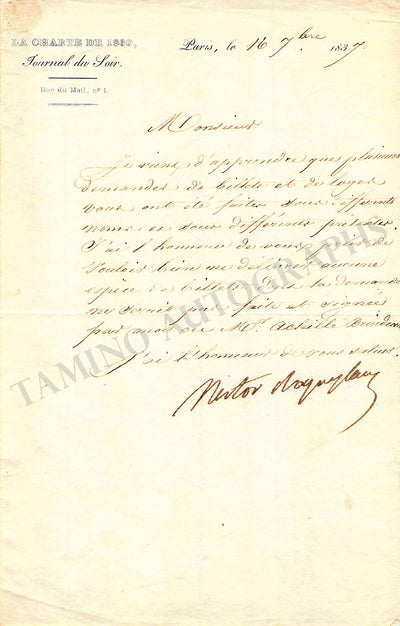 LA CHARTE DE 1830,
Journal du Soir.
Rue du Mail, nº 1.
Paris, le 16 7bre 1837.
Monsieur
Je viens d'apprendre que plusieurs
demandes de billets et de loges
vous ont été faites sous différents
noms et sous différents prétextes.
J'ai l'honneur de vous prier de
vouloir bien ne délivrer aucune
espèce de billets dont la demande
ne serait pas faite et signée
par moi ou Mr. Achille
J'ai l'honneur de vous saluer.
Nestor Roqueplan
TAMINO AUTOGRAPHS